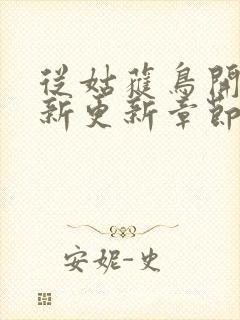 從姑蘿鳥開
新更新章節
安妮-史